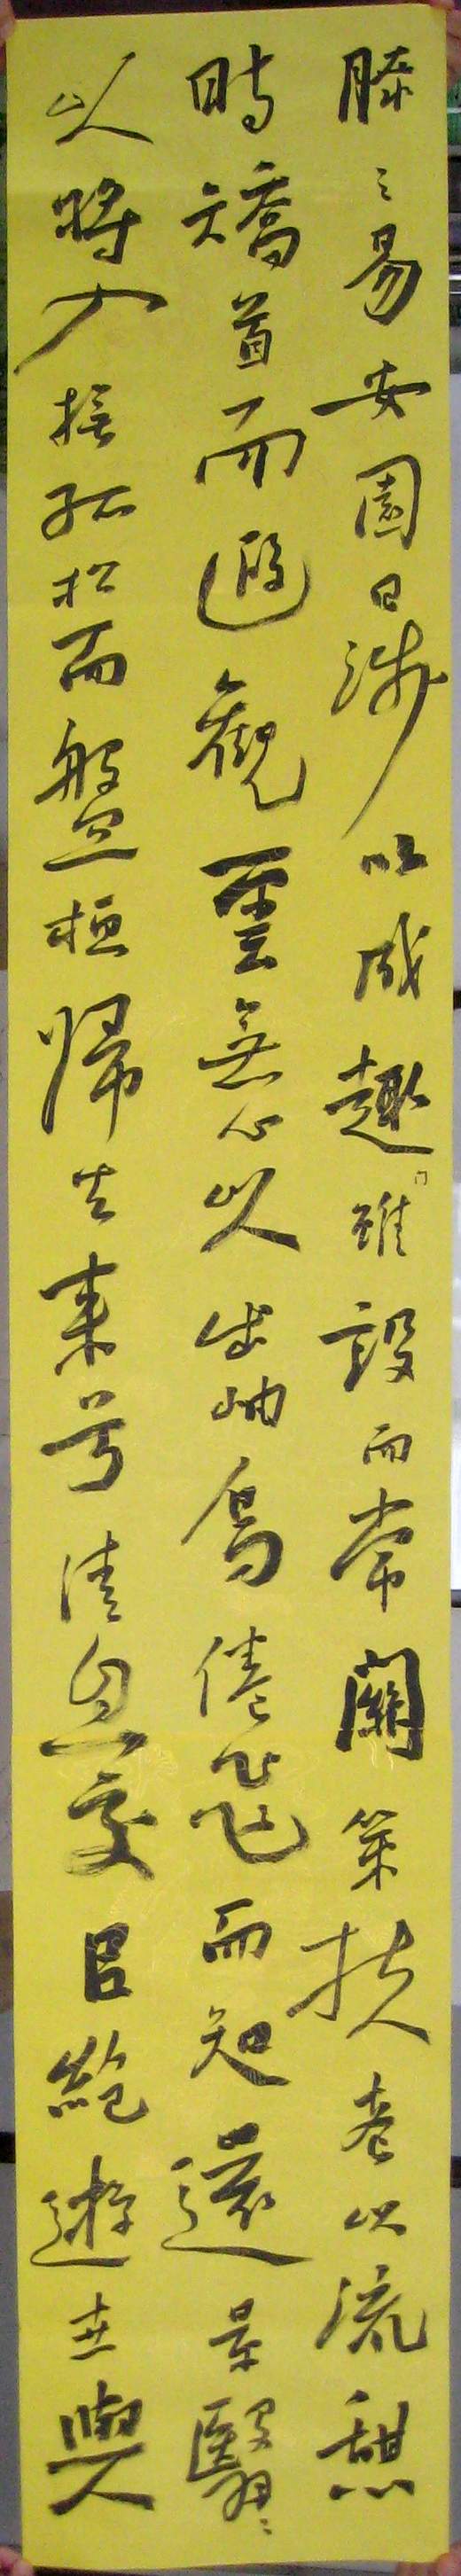 膝之易安園日涉以成趣門雖設而常關策扶老以流憩
時矯首而遐觀雲無心以出岫鳥倦飛而知還景翳翳
以將入撫孤松而盤桓歸去來兮請息交以絕遊世與